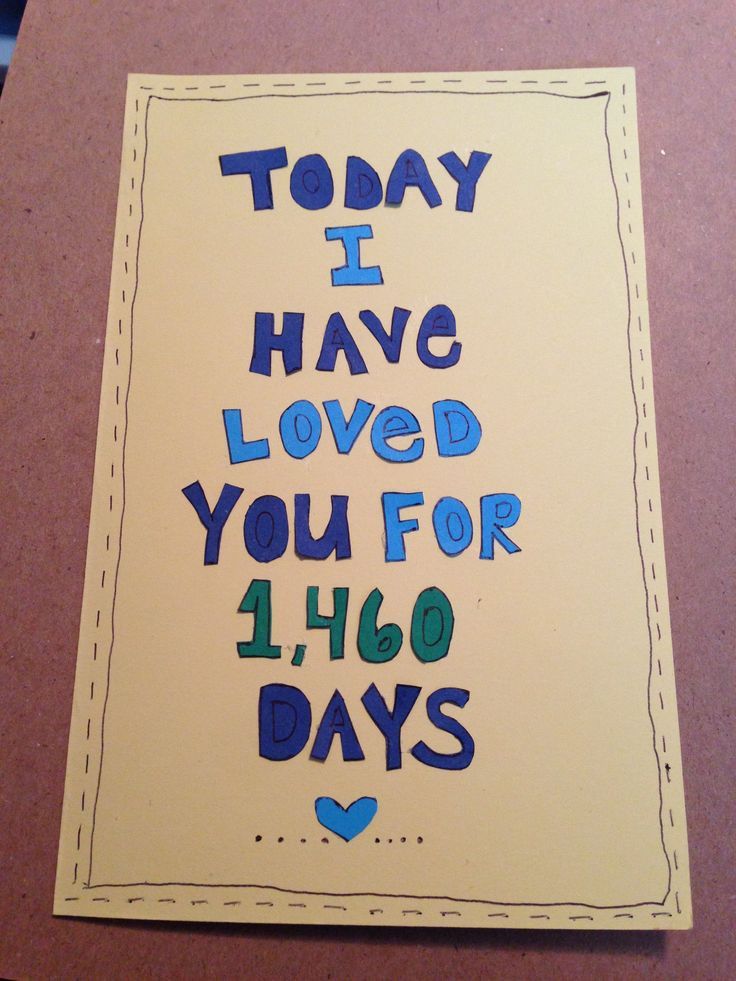 TODAY
I
HAVe
LOVeD
YOU FOR
1,460
DAYS